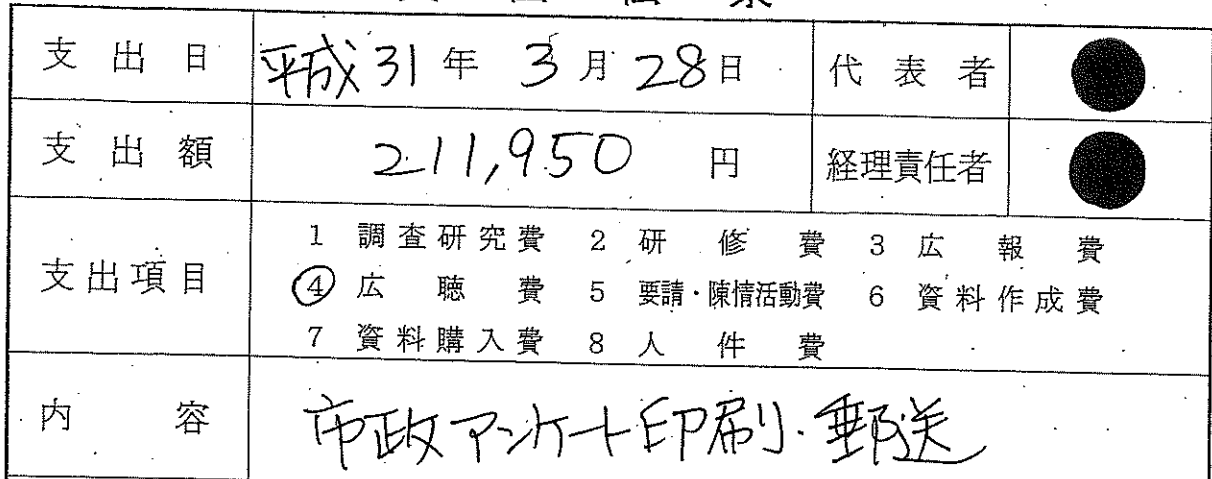 支出日 平成31年 3月28日 代表者
支出額 211,950 円 経理責任者
支出項目
1 調査研究費 2 研修費 3 広報費
④ 広聴費 5 要請・陳情活動費 6 資料作成費
7 資料購入費 8 人件費
内容 市政アンケート印刷・郵送